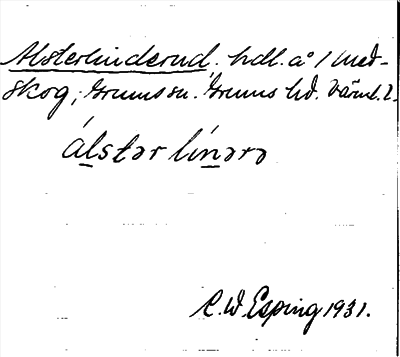 Alsterlinderud. hdl. å 1 Med-
skog; Grums sn. Grums hd. Värml. l.
álstər línərə
C. W. Esping 1931.